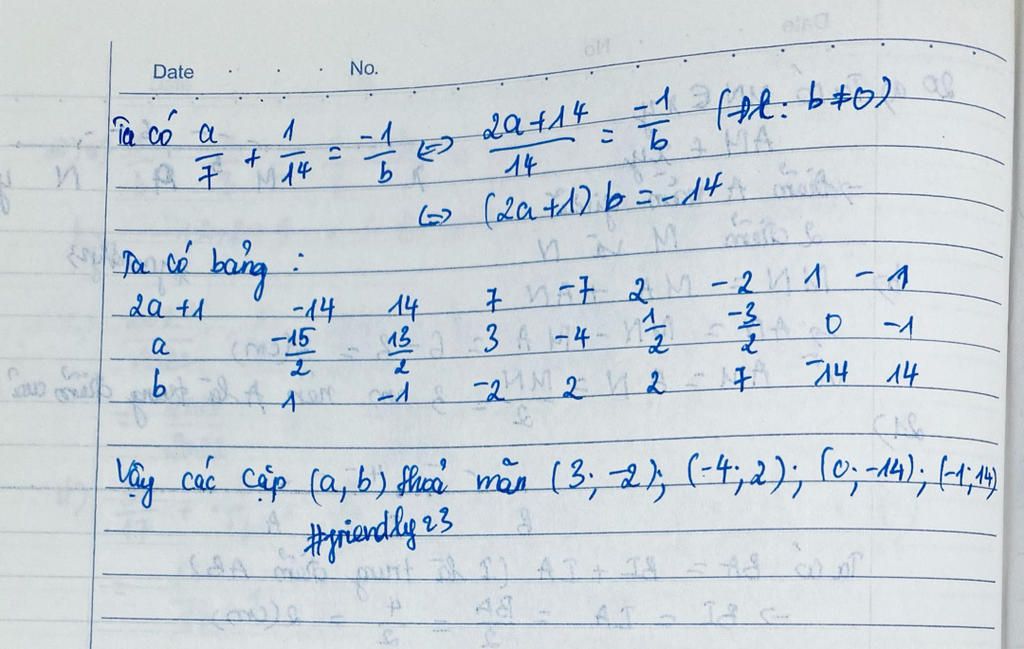 Date No.
Ta có a/7 + 1/14 = -1/b <=> 2a+14/14 = -1/b (đk: b ≠ 0)
<=> (2a+1) b = -14
Ta có bảng :
2a+1 -14 14 7 -7 2 -2 1 -1
a -15/2 13/2 3 -4 1/2 -3/2 0 -1
b 1 -1 -2 2 2 7 -14 14
Vậy các cặp (a, b) thoả mãn (3; -2); (-4; 2); (0; -14); (-1; 14)
#friendly23